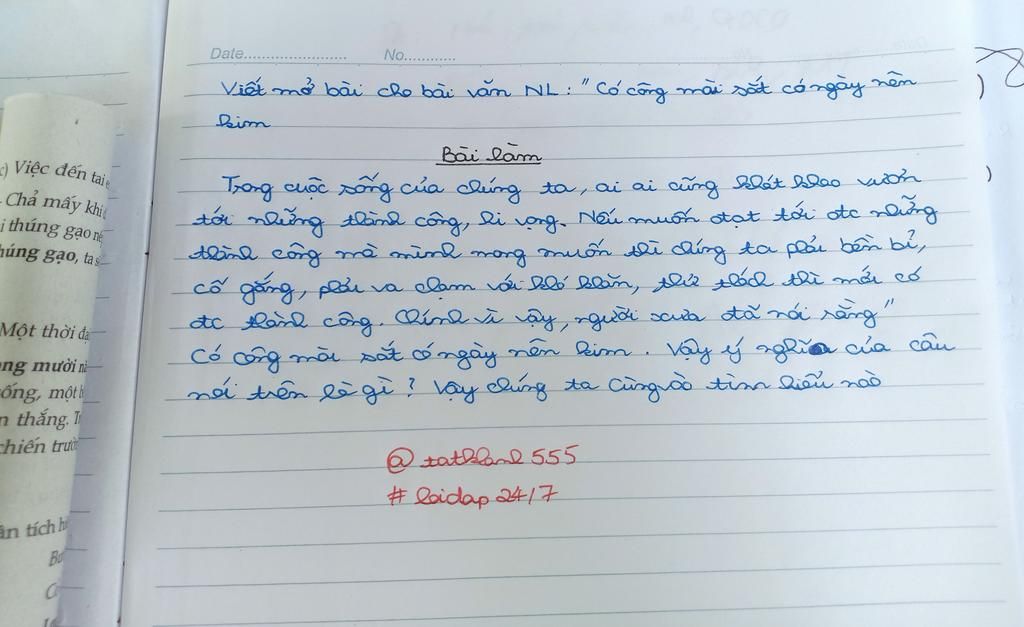 Date........................ No............
Viết mở bài cho bài văn NL : "Có công mài sắt có ngày nên
kim
Bài làm
Trong cuộc sống của chúng ta, ai ai cũng khát khao vươn
tới những thành công, hi vọng. Nếu muốn đạt tới đtc những
thành công mà mình mong muốn thì chúng ta phải bền bỉ,
cố gắng, phải va chạm với khó khăn, thử thách thì mới có
đtc thành công. Chính vì vậy, người xưa đã nói rằng"
Có công mài sắt có ngày nên kim. Vậy ý nghĩa của câu
nói trên là gì? Vậy chúng ta cùng đò tìm hiểu nào
@tathkanh555
#hoidap24/7
c) Việc đến tai
Chả mấy khi
i thúng gạo
húng gạo, ta
Một thời
ng mười
ống, một
n thắng.
chiến
ân tích